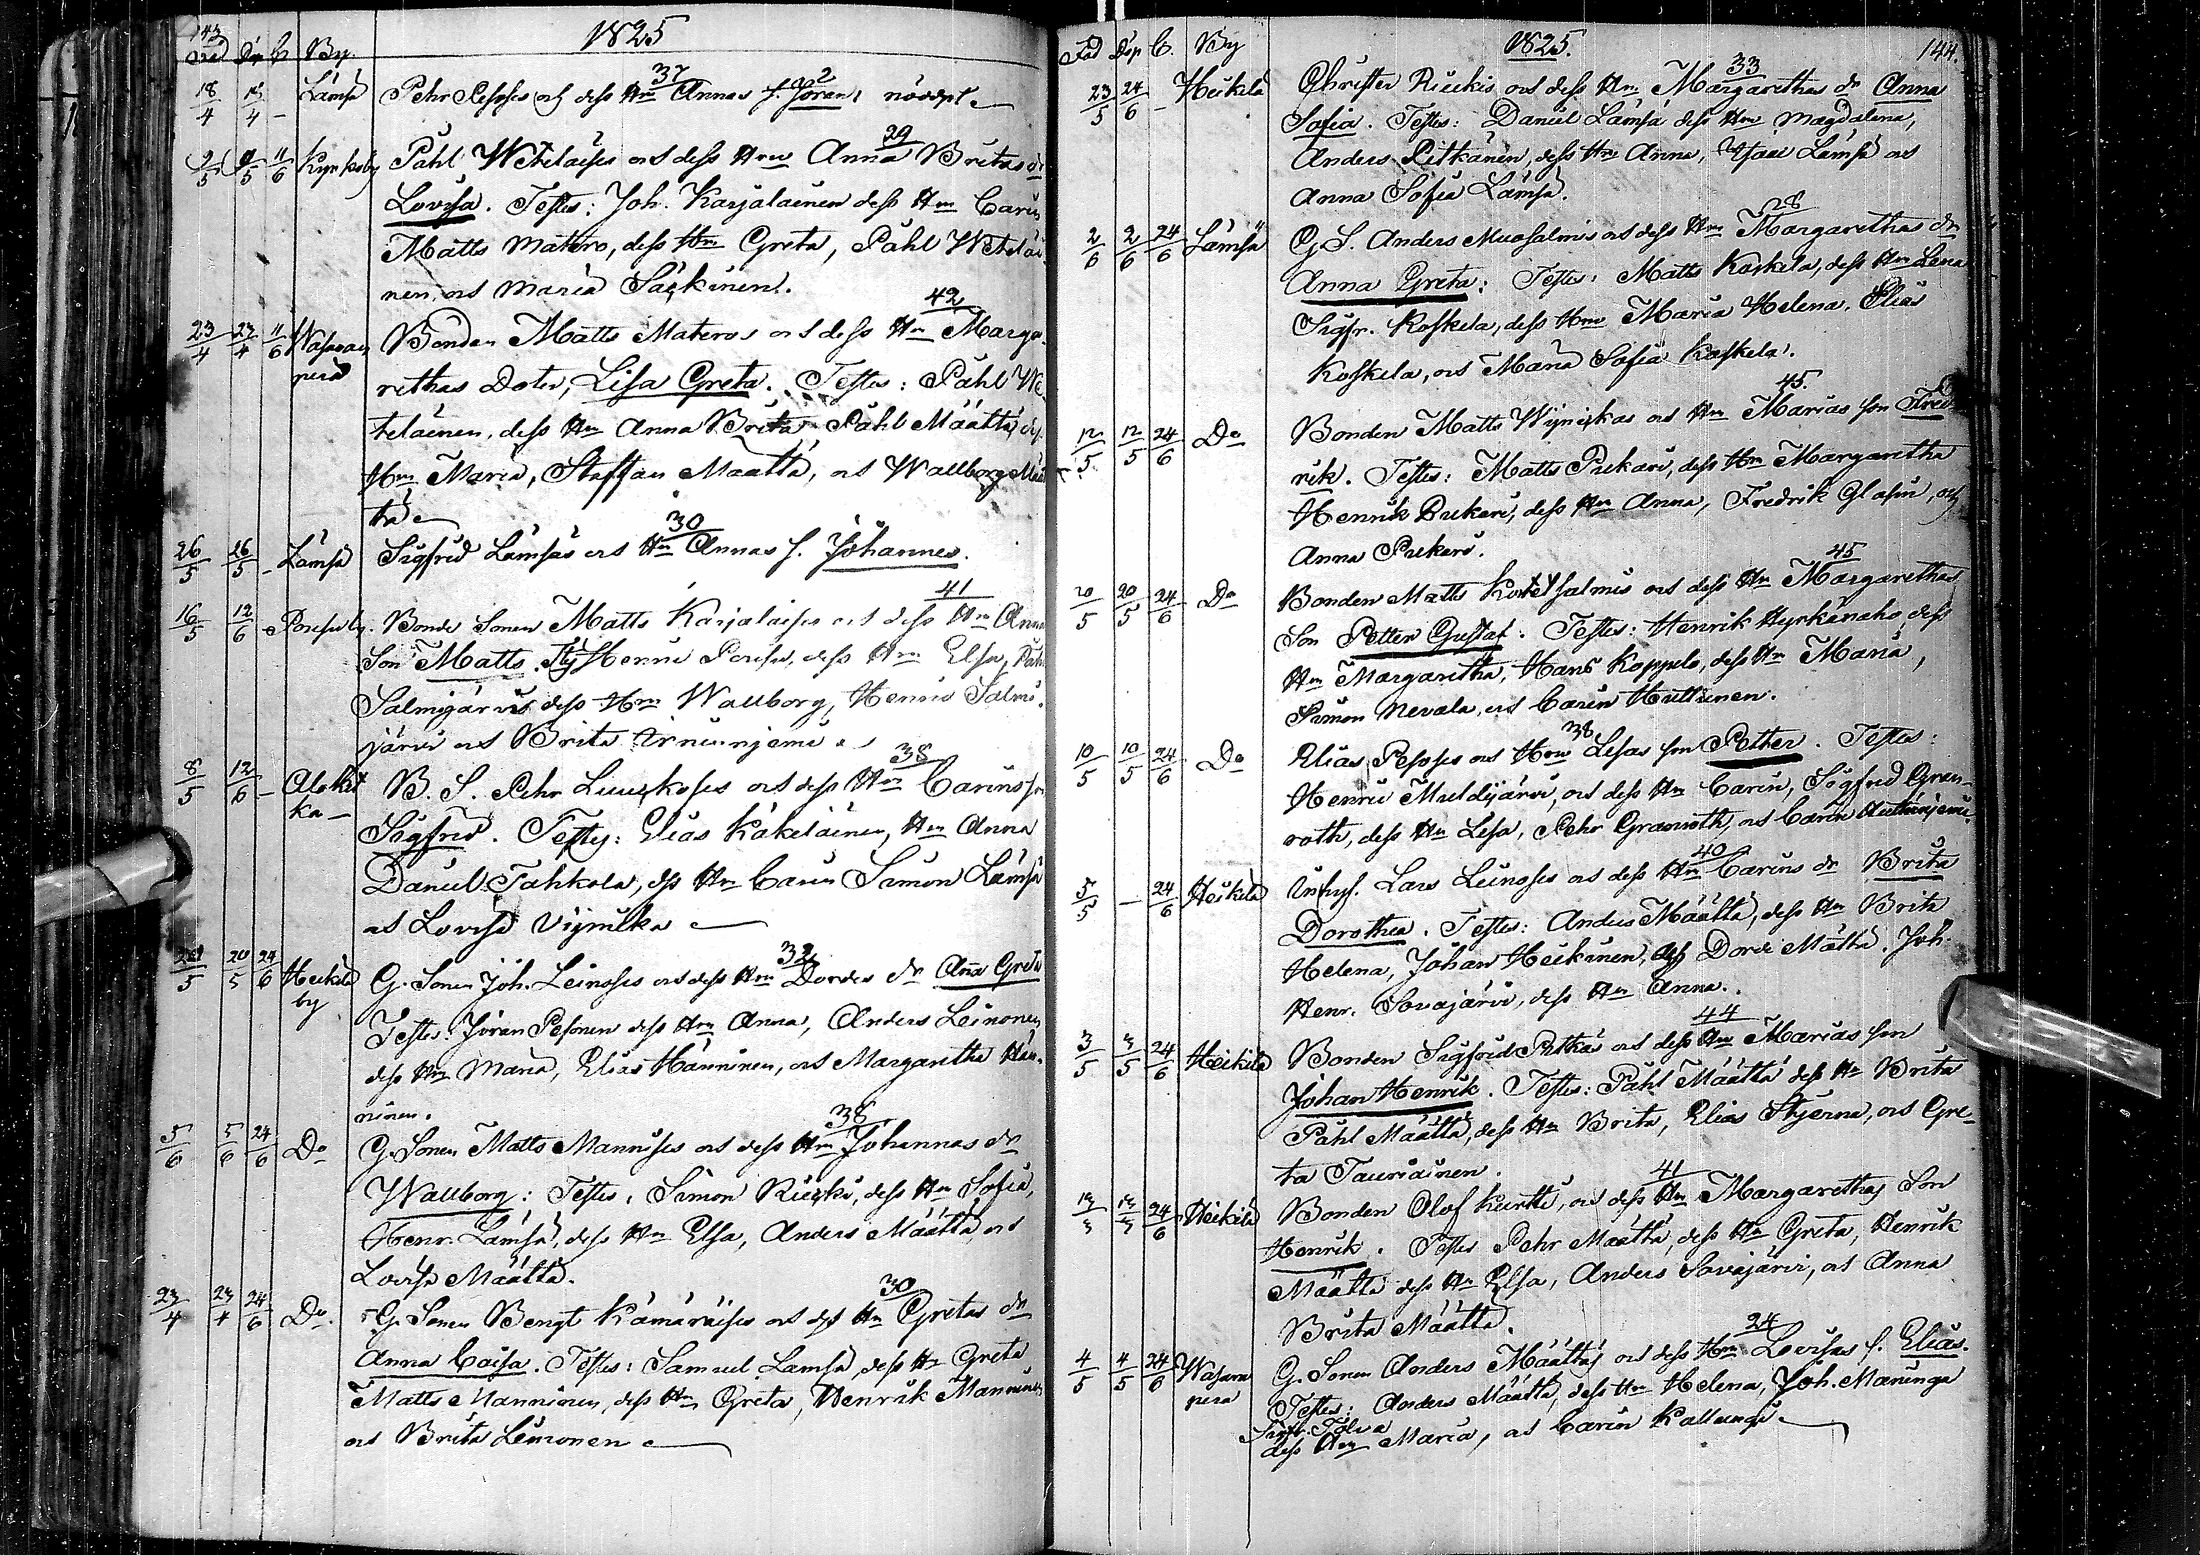 143
1825
Född Döp C By.
18/4 18/4 – Lämsä
37 2
Pehr Pesoses och dess Hru Annas s. Jöran, nöddöpt
2/5 2/5 11/6 Kyrkoby
29
Påhl Wetelaises och dess Hru Anna Britas dr
Lovisa. Testes: Joh. Karjalainen dess Hru Carin
Matts Matero, dess Hru Greta, Påhl Wetelai-
nen, och Maria Säskinen.
23/4 23/4 11/6 Wasaran
perä
42
Bonden Matts Materos och dess Hru Marga-
rethas Doter, Lisa Greta. Testes: Påhl We-
teläinen, dess Hru Anna Brita, Påhl Määttä, dess
Hru Maria, Staffan Maatta, och Wallborg Määt
tä
26/5 26/5 – Lämsä
30
Sigfrid Lämsäs och Hru Annas s. Johannes.
16/5 12/6 – Posioby.
41
Bonde Sonen Matts Karjalaises och dess Hru Anna
Son Matts. Henric dess Hru Elsa, Påhl
Salmijärvi dess Hru Wallborg, Henric Salmi-
järvi och Brita
8/5 12/6 – Alokit
ka
38
B. S. Pehr Luuskoses och dess Hru Carins son
Sigfrid. Testes: Elias Käkeläinen, Hru Anna
Daniel Tahkola, dess Hru Carin Simon Lämsä
och Lovisa
20/5 20/5 24/6 Heikilä
by
32
G. Sonen Joh. Leinoses och dess Hru Dordes dr Aña Greta
Testes: Jöran Pesonen dess Hru Anna, Anders Leinonen
dess Hru Maria, Elias Hänninen, och Margaretha Hän-
ninen.
5/6 5/6 24/6 Do
38
G. Sonen Matts Mannises och dess Hru Johannas dr
Wallborg: Testes, Simon Riecki, dess Hru Sofia,
Henr. Lämsä, dess Hru Elsa, Anders Määttä och
Lovisa Määttä.
23/4 23/4 24/6 Do.
30
G. Sonen Bengt Kämäräises och dess Hru Gretas dr
Anna Caisa. Testes: Samuel Lamsä, dess Hr Greta
Matts Manninen, dess Hru Greta, Henrik Manninen
och Brita Leinonen
144.
1825.
Född Döp C. By
23/5 24/6 – Heikilä
33
Christer Rieckis och dess Hru Margarethas dr Anna
Sofia. Testes: Daniel Lämsä dess Hru Magdalena,
Anders Pitkänen, dess Hru Anna, Isaac Lämsä och
Anna Sofia Lämsä.
2/6 2/6 24/6 Lämsä
28
G. S. Anders Muosalmis och dess Hru Margarethas dr
Anna Greta: Testes: Matts Koskela, dess Hru Lena
Sigfr. Koskela, dess Hru Maria Helena, Elias
Koskela, och Maria Sofia Koskela.
12/5 12/5 24/6 Do
45.
Bonden Matts och Hru Marias son Fred-
rik. Testes: Matts Pukari, dess Hru Margaretha
Henrik Pukari, dess Hru Anna, Fredrik Glasin, och
Anna Pukari.
20/5 20/5 24/6 Do
45
Bonden Matts och dess Hru Margarethas
Son Petter Gustaf. Testes: Henrik Hyrkänaho dess
Hru Margaretha, Hans Koppelo, dess Hru Maria,
Simon Nevala, och Carin Huttunen.
10/5 10/5 24/6 Do
38
Elias Pesoses och Hru Lisas son Petter. Testes:
Henric Muldijärvi, och dess Hru Carin, Sigfred Gran-
roth, dess Hru Lisa, Pehr Granroth, och Carin
5/5 – 24/6 Heikilä
40
Inhys. Lars Leinoses och dess Hru Carins dr Brita
Dorothea. Testes: Anders Määttä, dess Hru Brita
Helena, Johan Heikinen, och Dorde Mättä. Joh.
Henr. Sovajärvi, dess Hru Anna.
3/5 3/5 24/6 Heikilä
44
Bonden Sigfrid Pitkäs och dess Hru Marias son
Johan Henrik. Testes: Påhl Määttä dess Hr Brita
Påhl Määttä, dess Hru Brita, Elias Stjerna, och Gre-
ta Tauriainen.
24/6 Heikilä
41
Bonden Olof Kurtti, och dess Hru Margarethas Son
Henrik. Testes Pehr Määttä, dess Hru Greta, Henrik
Määttä dess Hru Elsa, Anders Sovajärvi, och Anna
Brita Määttä.
4/5 4/5 24/6 Wasaran
perä
24
G. Sonen Anders Määttäs och dess Hru Lovisas s. Elias.
Testes: Anders Määttä, dess Hru Helena, Joh. Maninga
dess Hru Maria, och Carin Kallunki